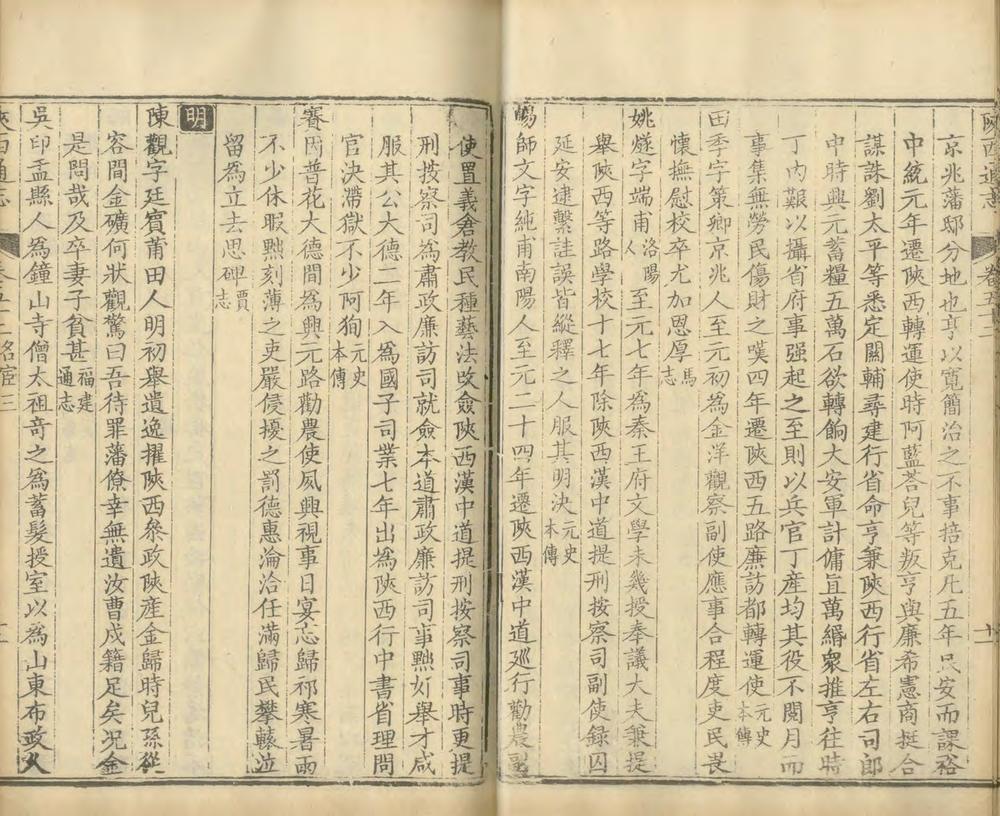 陝西通志 卷五十二
京兆藩邸分地也亨以寬簡治之不事掊克凡五年民安而課裕
中統元年遷陝西轉運使時阿藍荅兒等叛亨與廉希憲商挺合
謀誅劉太平等悉定關輔尋建行省命亨兼陝西行省左右司郎
中時興元蓄糧五萬石欲轉餉大安軍計傭直萬緡衆推亨往時
丁內艱以攝省府事强起之至則以兵官丁產均其役不閱月而
事集無勞民傷財之嘆四年遷陝西五路廉訪都轉運使元史本傳
田季字策卿京兆人至元初為金洋觀察副使應事合程度吏民畏
懷撫慰校卒尤加恩厚馬志
姚燧字端甫洛陽人至元七年為秦王府文學未幾授奉議大夫兼提
舉陝西等路學校十七年除陝西漢中道提刑按察司副使録囚
延安逮繫詿誤皆縱釋之人服其明決元史本傳
暢師文字純甫南陽人至元二十四年遷陝西漢中道廵行勸農副
使置義倉教民種藝法改僉陝西漢中道提刑按察司事時更提
刑按察司為肅政廉訪司就僉本道肅政廉訪司事黜奸舉才咸
服其公大德二年入為國子司業七年出為陝西行中書省理問
官決滯獄不少阿狥元史本傳
賽因普花大德間為興元路勸農使夙興視事日宴忘歸祁寒暑雨
不少休暇黜刻薄之吏嚴侵擾之罰德惠淪洽任滿歸民攀轅泣
留為立去思碑賈志
明
陳觀字廷賓莆田人明初舉遺逸擢陝西叅政陝產金歸時兒孫從
容間金礦何狀觀驚曰吾待罪藩僚幸無遺汝曹戍籍足矣况金
是問哉及卒妻子貧甚福建通志
吳印孟縣人為鐘山寺僧太祖竒之為蓄髮授室以為山東布政又
陝西通志 卷五十二名宦三